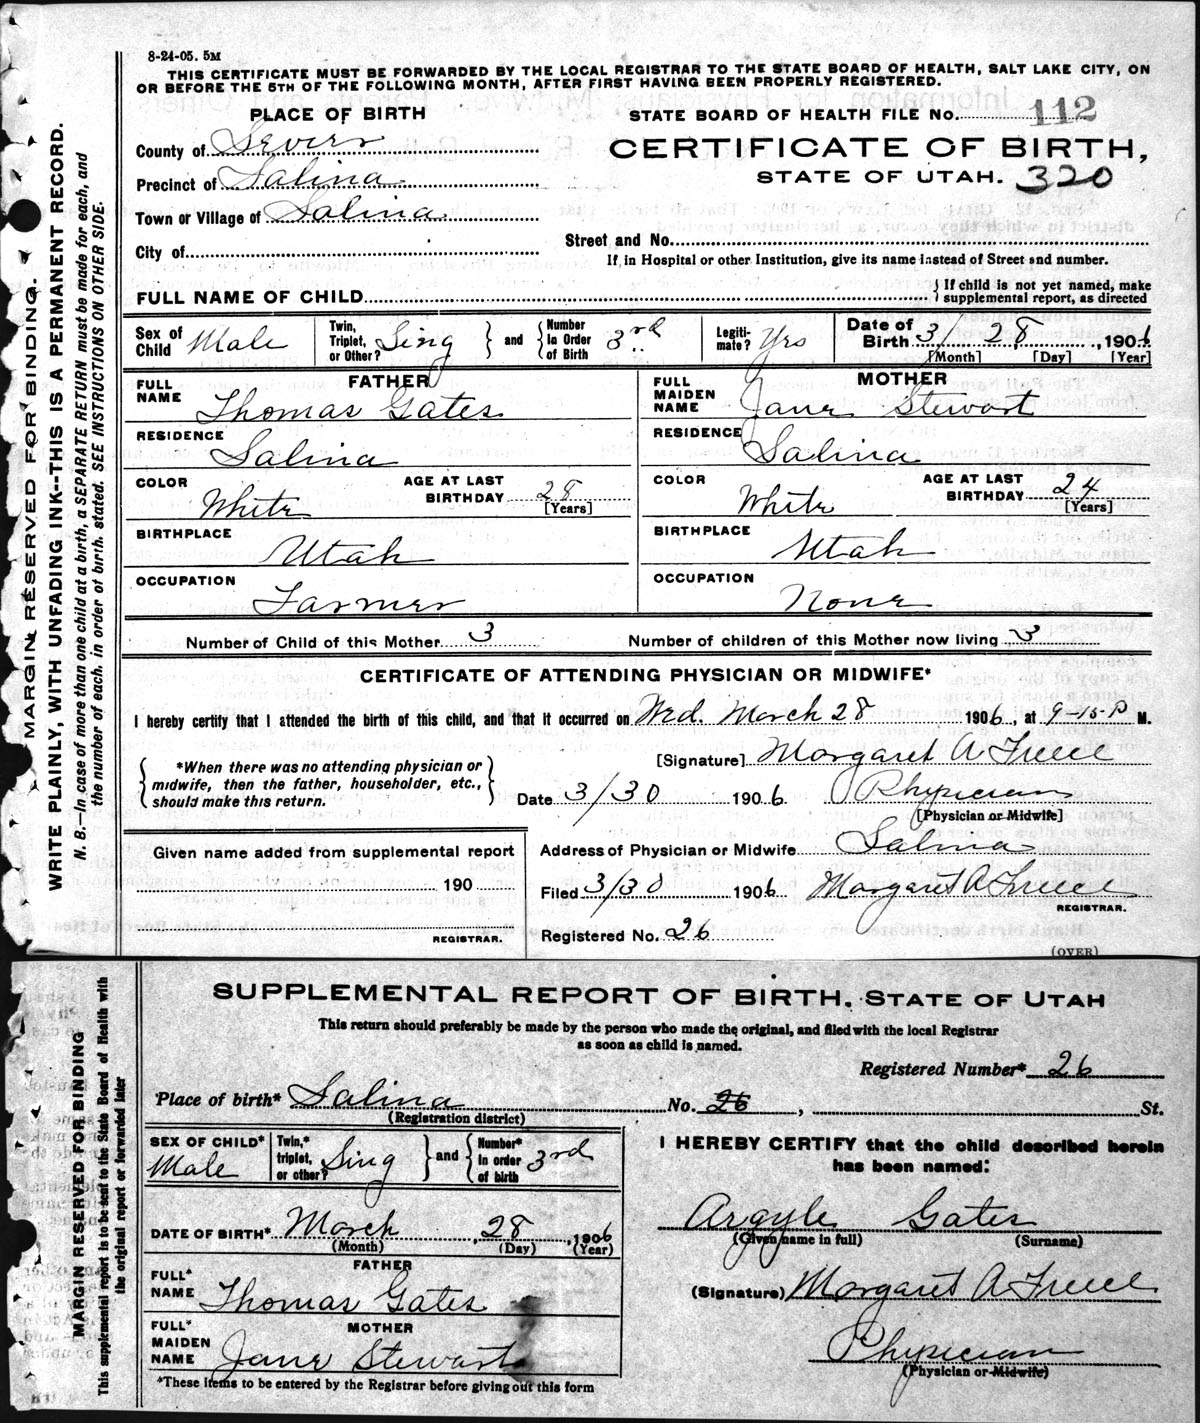 8-24-05. 5M
THIS CERTIFICATE MUST BE FORWARDED BY THE LOCAL REGISTRAR TO THE STATE BOARD OF HEALTH, SALT LAKE CITY, ON
OR BEFORE THE 5TH OF THE FOLLOWING MONTH, AFTER FIRST HAVING BEEN PROPERLY REGISTERED.
PLACE OF BIRTH
STATE BOARD OF HEALTH FILE No. 112
CERTIFICATE OF BIRTH,
STATE OF UTAH. 320
County of Sevier
Precinct of Salina
Town or Village of Salina
City of
Street and No.
If, in Hospital or other Institution, give its name instead of Street and number.
FULL NAME OF CHILD
If child is not yet named, make
supplemental report, as directed
Sex of Child Male
Twin, Triplet, or Other? Sing and Number in Order of Birth 3rd
Legiti-mate? Yes
Date of Birth 3/28, 1906
[Month] [Day] [Year]
FATHER
FULL NAME Thomas Gates
RESIDENCE Salina
COLOR White
AGE AT LAST BIRTHDAY 28 [Years]
BIRTHPLACE Utah
OCCUPATION Farmer
MOTHER
FULL MAIDEN NAME Jane Stewart
RESIDENCE Salina
COLOR White
AGE AT LAST BIRTHDAY 24 [Years]
BIRTHPLACE Utah
OCCUPATION None
Number of Child of this Mother 3
Number of children of this Mother now living 3
CERTIFICATE OF ATTENDING PHYSICIAN OR MIDWIFE*
I hereby certify that I attended the birth of this child, and that it occurred on Wed. March 28 1906, at 9-15-P M.
*When there was no attending physician or
midwife, then the father, householder, etc.,
should make this return.
[Signature] Margaret A Freece
Date 3/30 1906 Physician
[Physician or Midwife]
Given name added from supplemental report
190
REGISTRAR.
Address of Physician or Midwife Salina
Filed 3/30 1906 Margaret A Freece
REGISTRAR.
Registered No. 26
(OVER)
MARGIN RESERVED FOR BINDING.
WRITE PLAINLY, WITH UNFADING INK--THIS IS A PERMANENT RECORD.
N. B.—In case of more than one child at a birth, a SEPARATE RETURN must be made for each, and
the number of each, in order of birth, stated. SEE INSTRUCTIONS ON OTHER SIDE.
SUPPLEMENTAL REPORT OF BIRTH, STATE OF UTAH
This return should preferably be made by the person who made the original, and filed with the local Registrar
as soon as child is named.
Registered Number* 26
Place of birth* Salina No. 26, St.
(Registration district)
SEX OF CHILD* Male
Twin,* triplet, or other? Sing and Number* in order of birth 3rd
DATE OF BIRTH* March, 28, 1906
(Month) (Day) (Year)
FATHER
FULL* NAME Thomas Gates
MOTHER
FULL* MAIDEN NAME Jane Stewart
*These items to be entered by the Registrar before giving out this form
I HEREBY CERTIFY that the child described herein
has been named:
Argyle Gates
(Given name in full) (Surname)
(Signature) Margaret A Freece
Physician
(Physician or Midwife)
MARGIN RESERVED FOR BINDING
This supplemental report is to be sent to the State Board of Health with
the original report or forwarded later